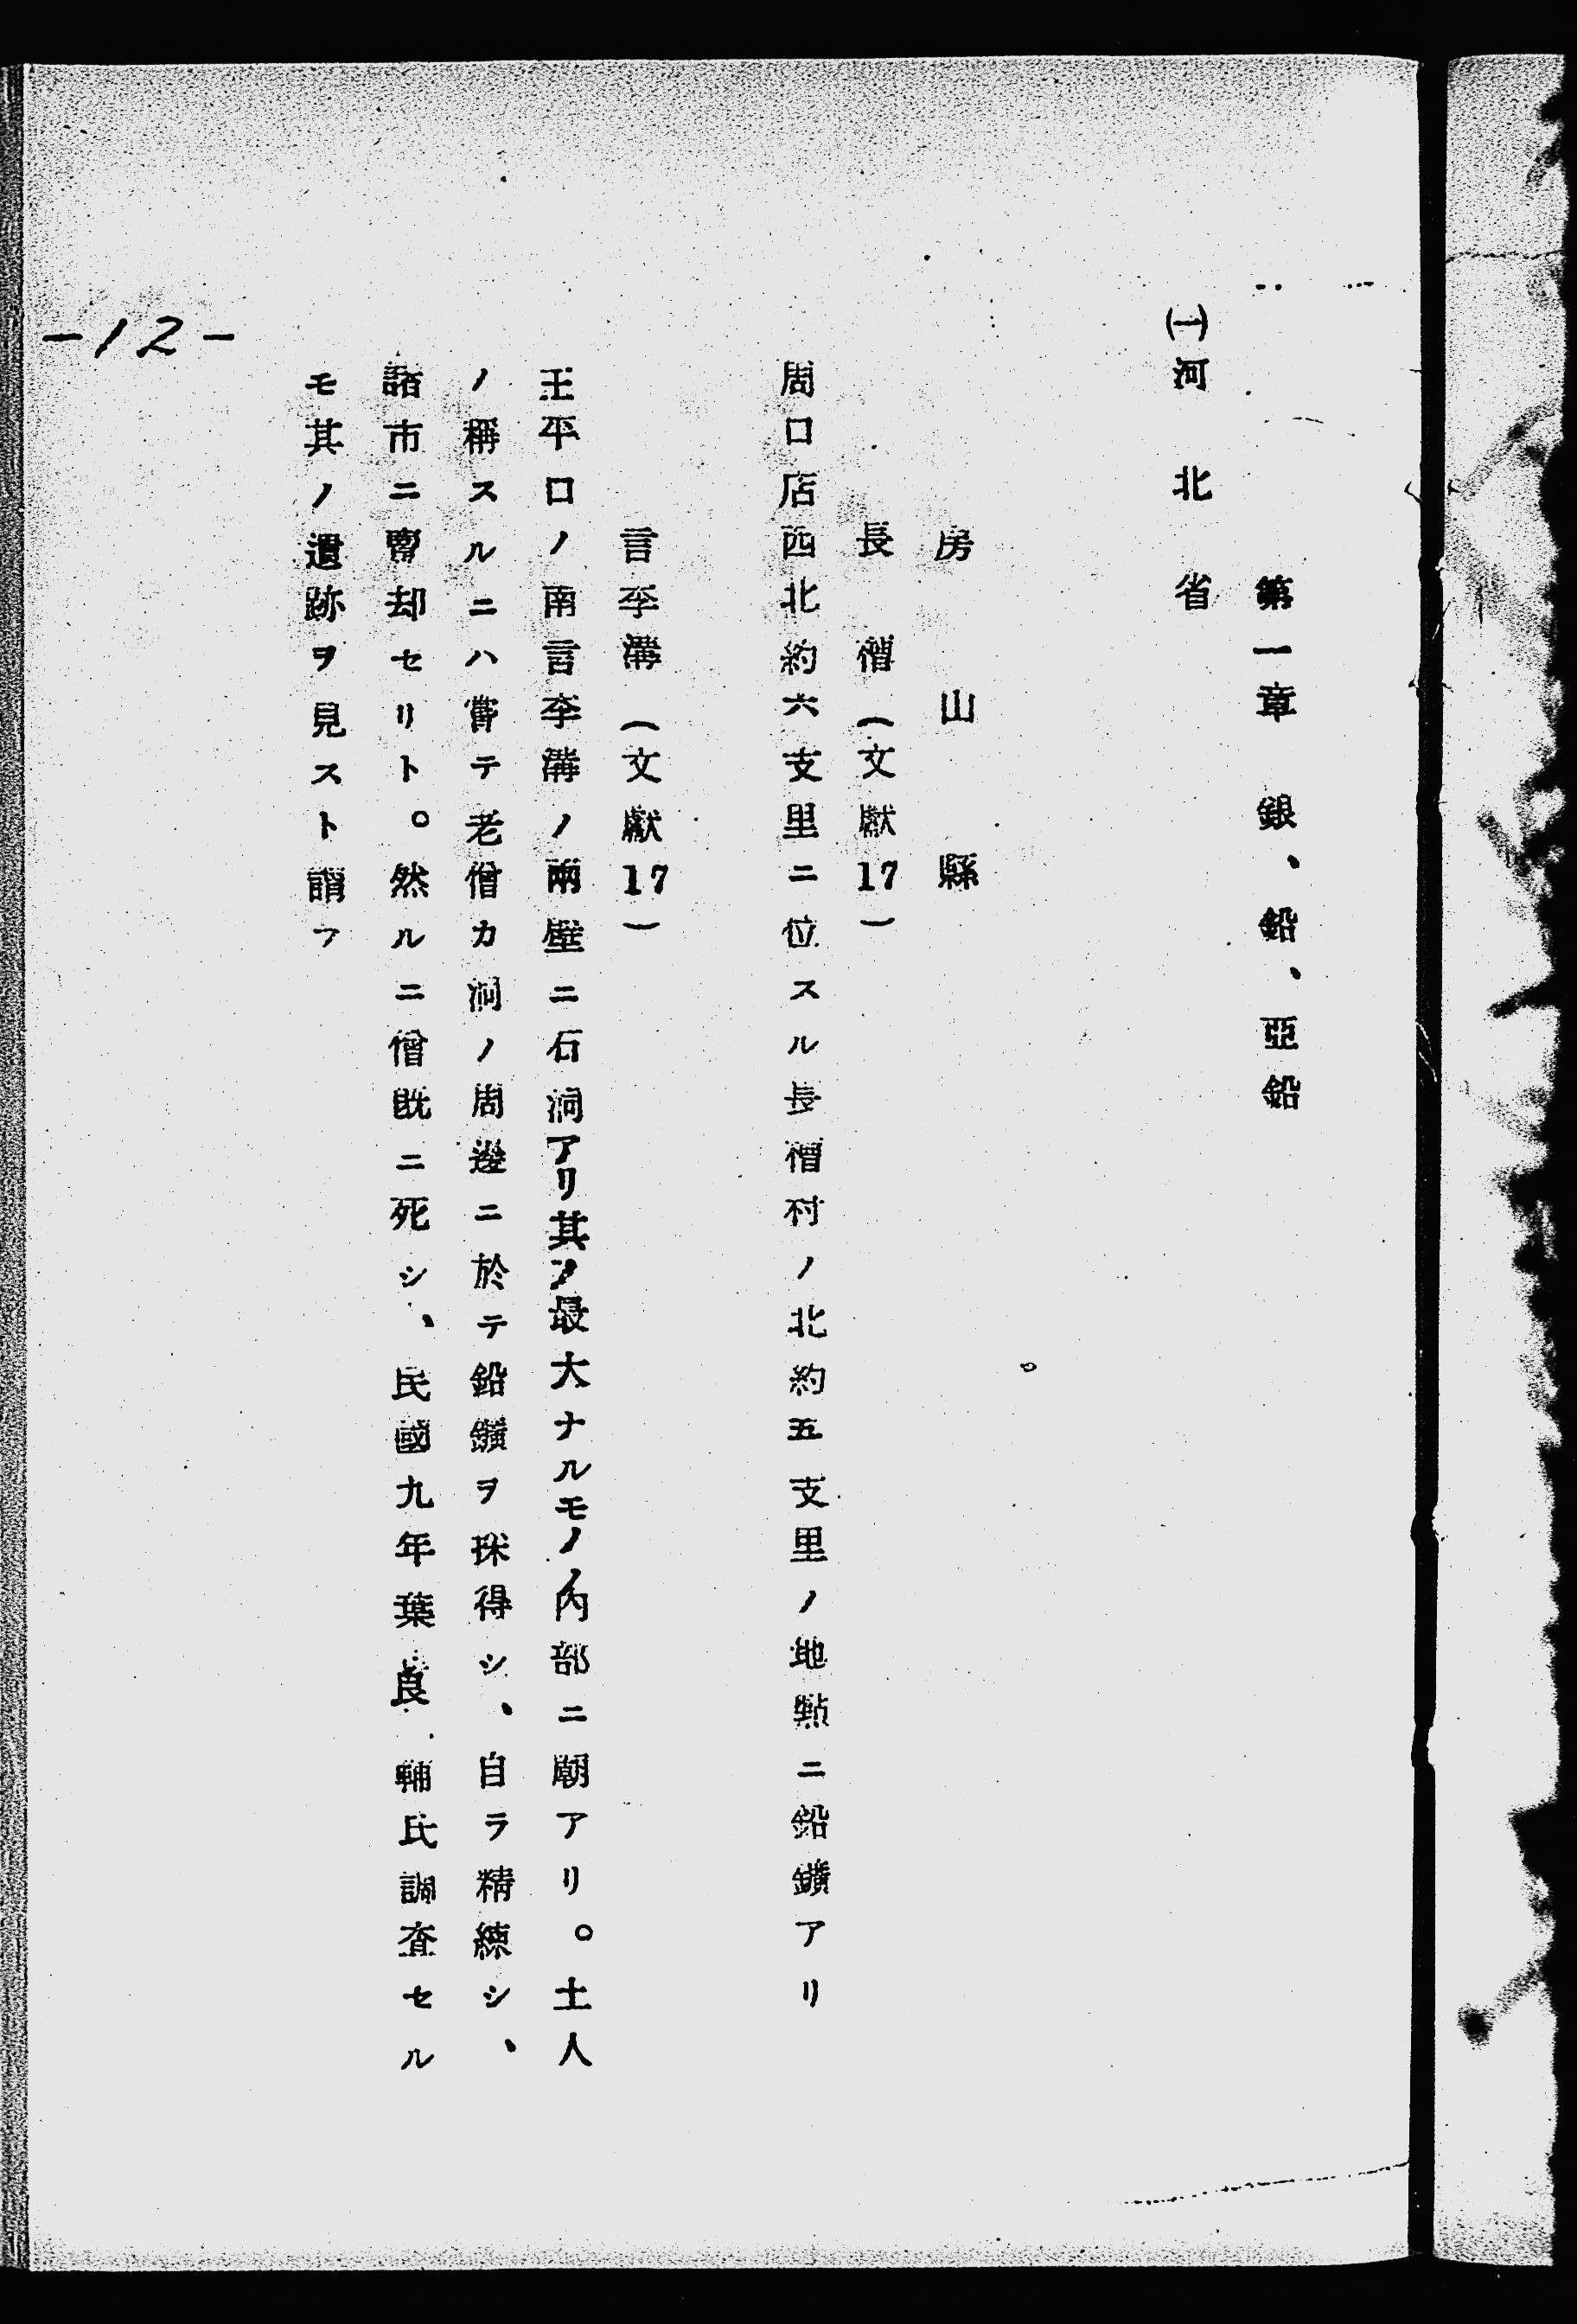 第一章　銀、鉛、亞鉛
㈠河北省
房山縣
長𫮃（文獻17）
周口店西北約六支里ニ位スル長村ノ北約五支里ノ地點ニ鉛鑛アリ
言李溝（文獻17）
王平口ノ南言李溝ノ兩壁ニ石洞アリ其ノ最大ナルモノノ內部ニ廟アリ。土人
ノ稱スルニハ嘗テ老僧カ洞ノ周邊ニ於テ鉛鑛ヲ採得シ、自ラ精練シ、
諸市ニ賣却セリト。然ルニ僧既ニ死シ、民國九年葉良輔氏調査セル
モ其ノ遺跡ヲ見スト謂フ
-12-